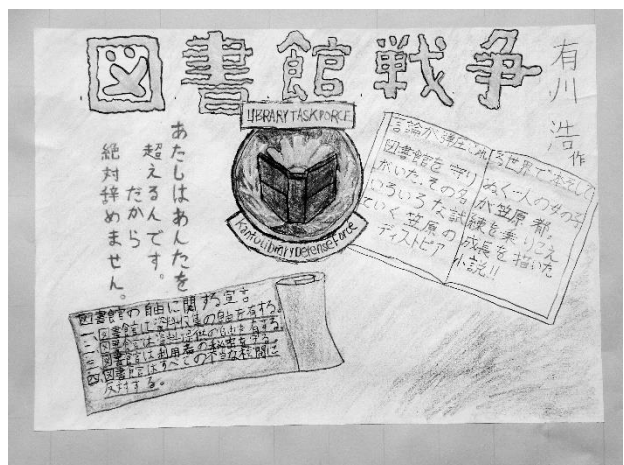 図書館戦争
有川 浩 作
LIBRARY TASK FORCE
Kanto Library Defense Force
あたしはあんたを
超えるんです。
だから
絶対辞めません。
図書館を守りぬく一人の女の子
がいた。その名が笠原郁。
いろいろな試練を乗りこえ
ていく笠原の成長を描いた
ディストピア小説!!
図書館の自由に関する宣言
一、図書館は資料収集の自由を有する。
二、図書館は資料提供の自由を有する。
三、図書館は利用者の秘密を守る。
四、図書館はすべての不当な検閲に
反対する。